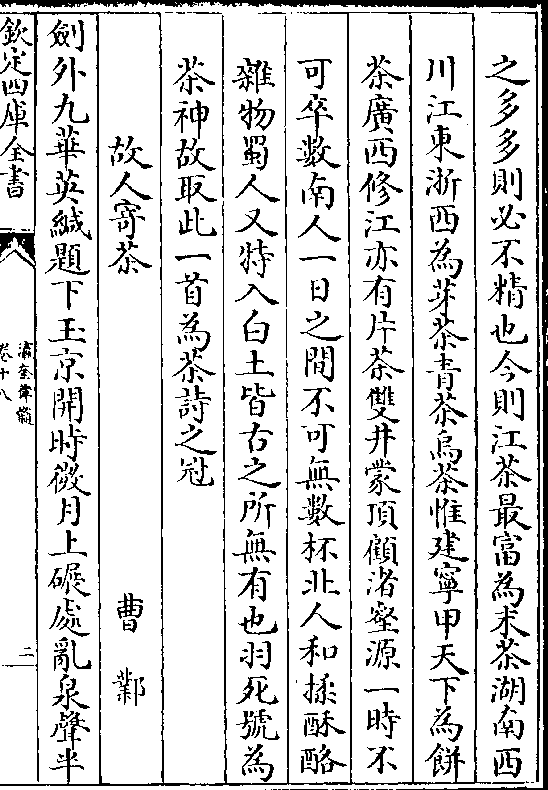 之多多則必不精也今則江茶最富為末茶湖南西
川江東浙西為芽茶青茶烏茶惟建寧甲天下為餅
茶廣西修江亦有片茶雙井蒙頂顧渚壑源一時不
可卒數南人一日之間不可無數杯北人和揉酥酪
雜物蜀人又特入白土皆古之所無有也羽死號為
茶神故取此一首為茶詩之冠
故人寄茶 曹鄴
劍外九華英緘題下玉京開時微月上碾處亂泉聲半
欽定四庫全書
瀛奎律髓
卷十八
二